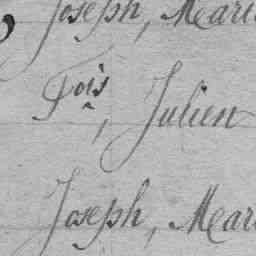 Joseph, Marie
Fois, Julien
Joseph, Mar